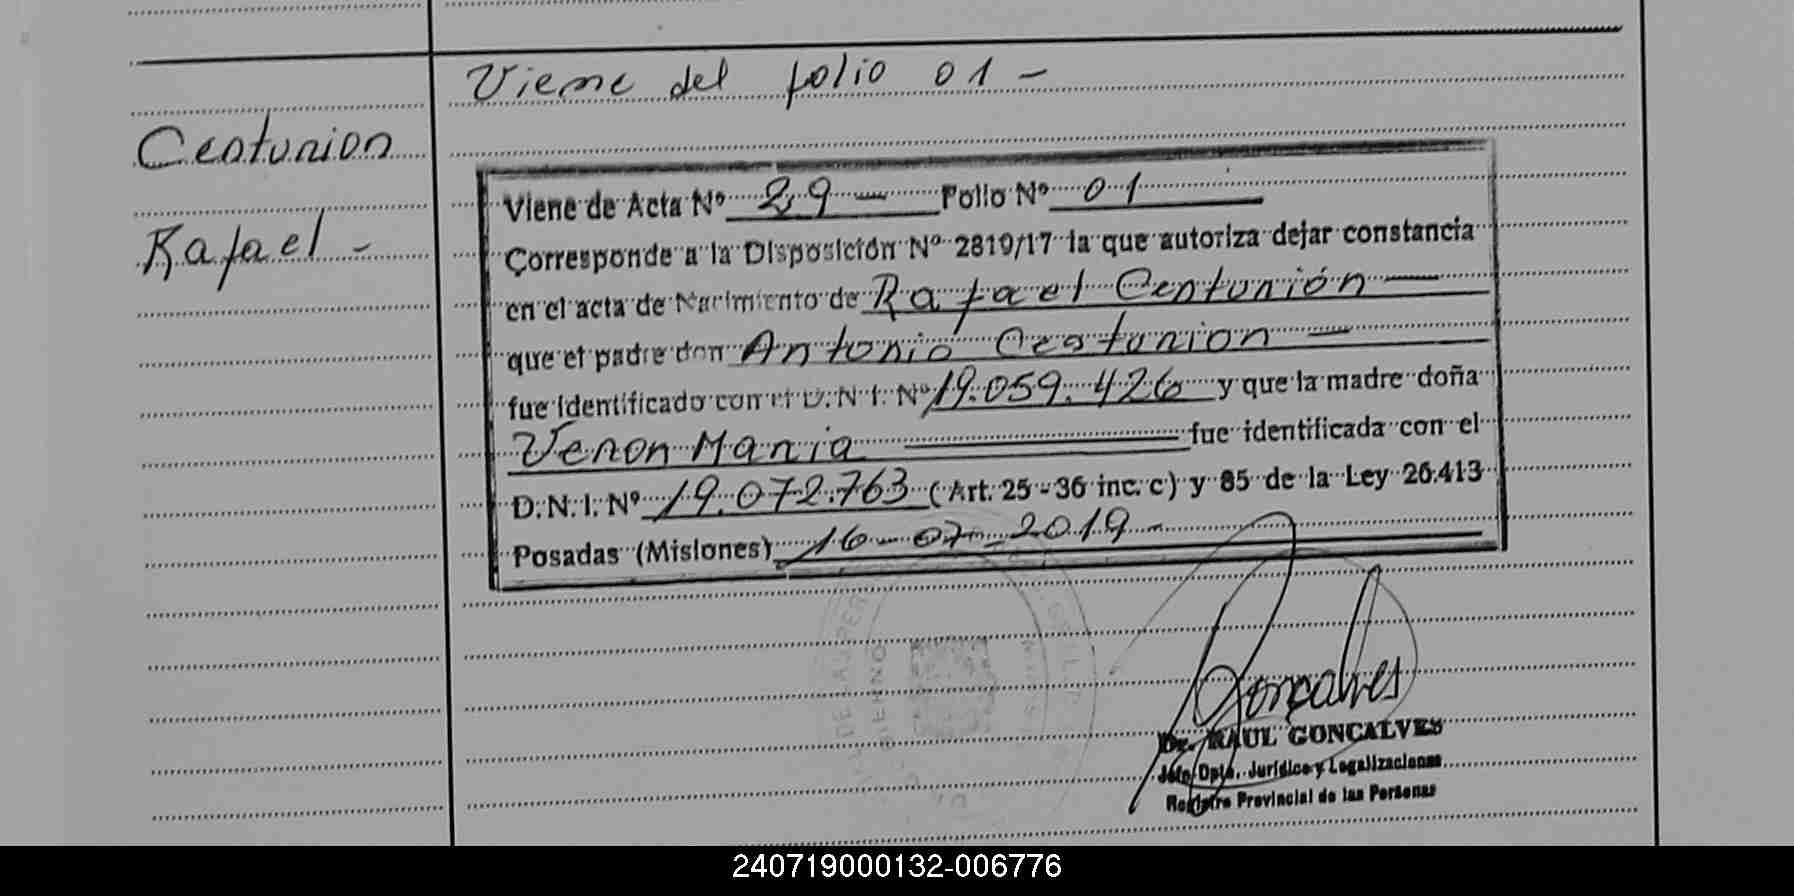 Viene del folio 01 -
Centurion
Rafael -
Viene de Acta Nº 29 — Folio Nº 01
Corresponde a la Disposición Nº 2819/17 la que autoriza dejar constancia
en el acta de Nacimiento de Rafael Centurión —
que el padre don Antonio Centurion —
fue identificado con el D.N.I. Nº 19.059.426 y que la madre doña
Veron Maria fue identificada con el
D.N.I. Nº 19.072.763 (Art. 25 - 36 inc. c) y 85 de la Ley 26.413
Posadas (Misiones) 16-07-2019-
Goncalves
Dr. RAUL GONCALVES
Jefe Dpto. Jurídico y Legalizaciones
Registro Provincial de las Personas
240719000132-006776